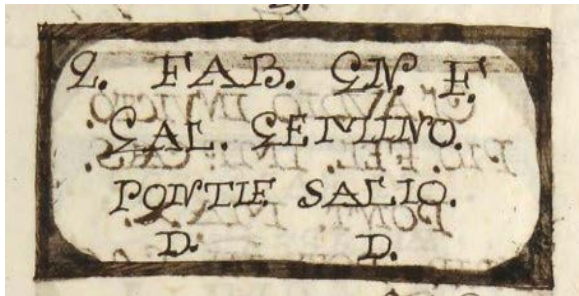 Q. FAB. GN. F.
GAL. GEMINO.
PONTIF. SALIO.
D. D.